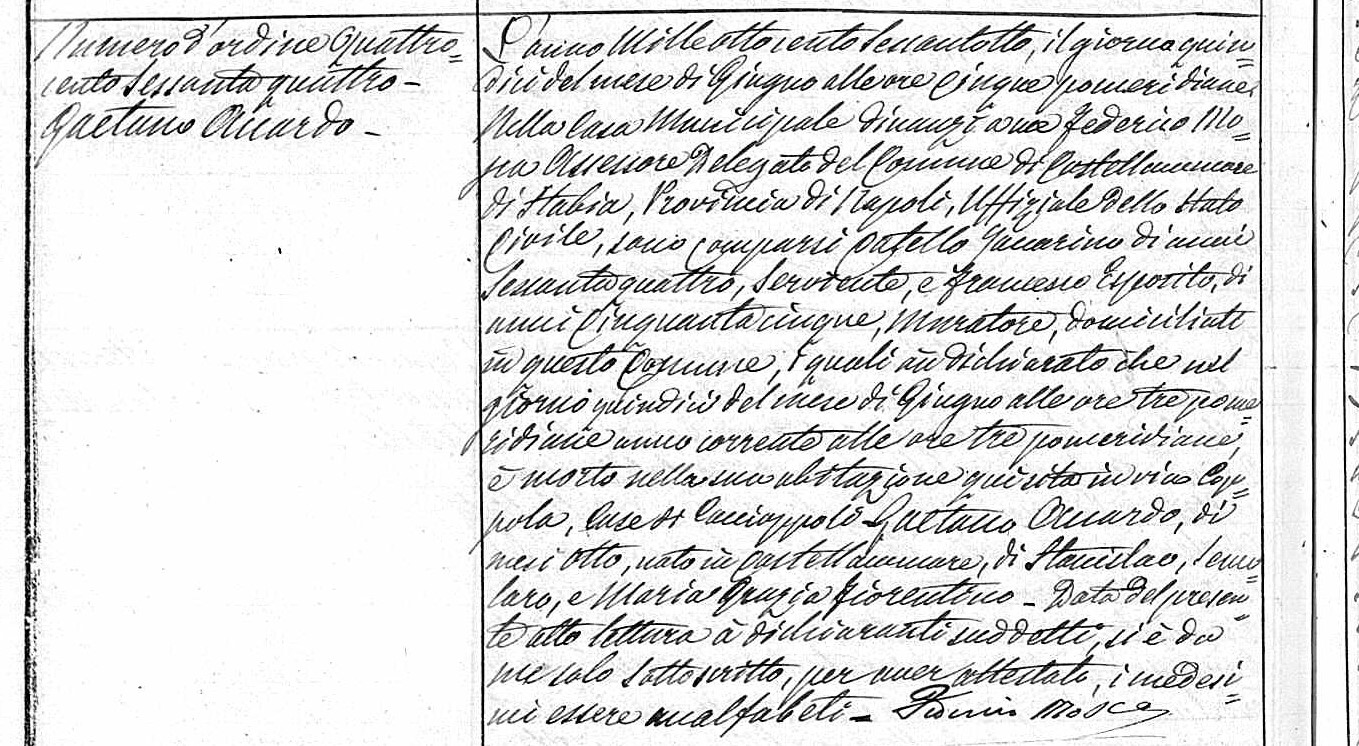 Numero d'ordine Quattro=
cento sessanta quattro -
Gaetano Accardo -
L'anno Milleottocento Sessantotto, il giorno quin=
dici del mese di Giugno alle ore Cinque pomeridiane
Nella Casa Municipale dinanzi a me Federico Mo=
sca Assessore Delegato del Comune di Castellammare
di Stabia, Provincia di Napoli, Uffiziale dello Stato
Civile, sono comparsi Catello di anni
Sessantaquattro, Servente, e Francesco Esposito, di
anni Cinquantacinque, Muratore, domiciliati
in questo Comune, i quali àn dichiarato che nel
giorno quindici del mese di Giugno alle ore tre pome=
ridiane anno corrente alle ore tre pomeridiane,
è morto nella sua abitazione qui sita in vico Cop=
pola, Case di Caccioppoli Gaetano Accardo, di
mesi Otto, nato in Castellammare, di Stanislao,
e Maria Grazia Fiorentino - Data del presen=
te atto lettura à dichiaranti suddetti, si è da
me solo sottoscritto, per aver attestato, i medesi=
mi essere analfabeti - Mosca